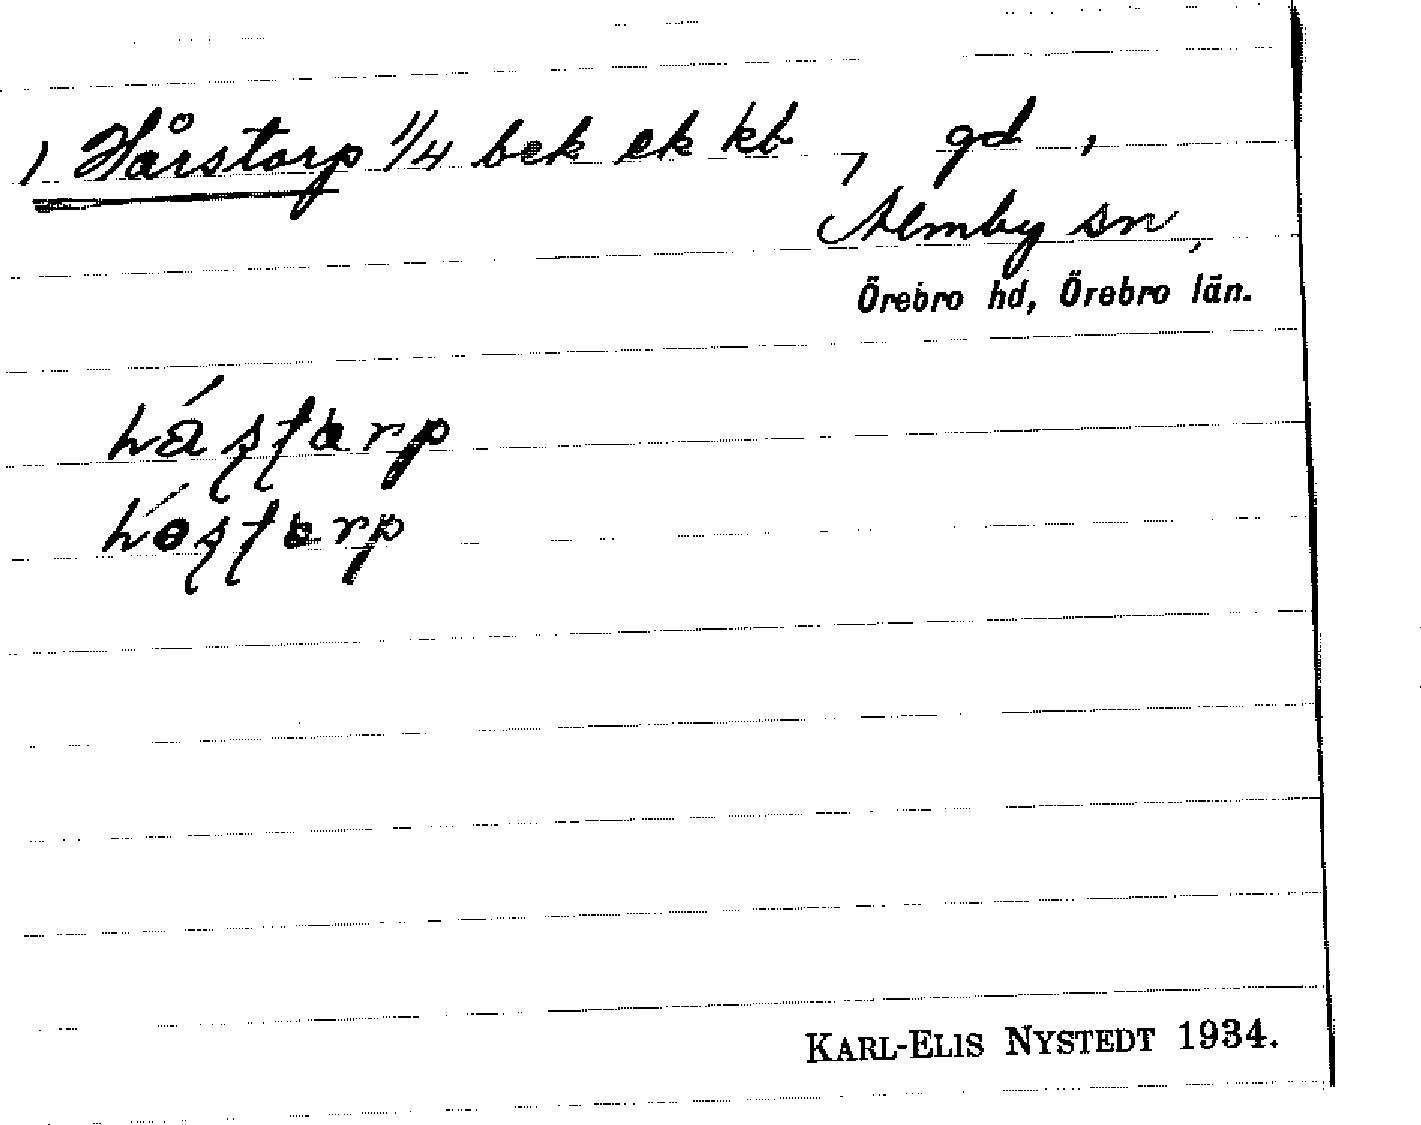 ) Hårstorp 1/4 bek ek kb , gd ,
Almby sn,
Örebro hd, Örebro län.
KARL-ELIS NYSTEDT 1934.